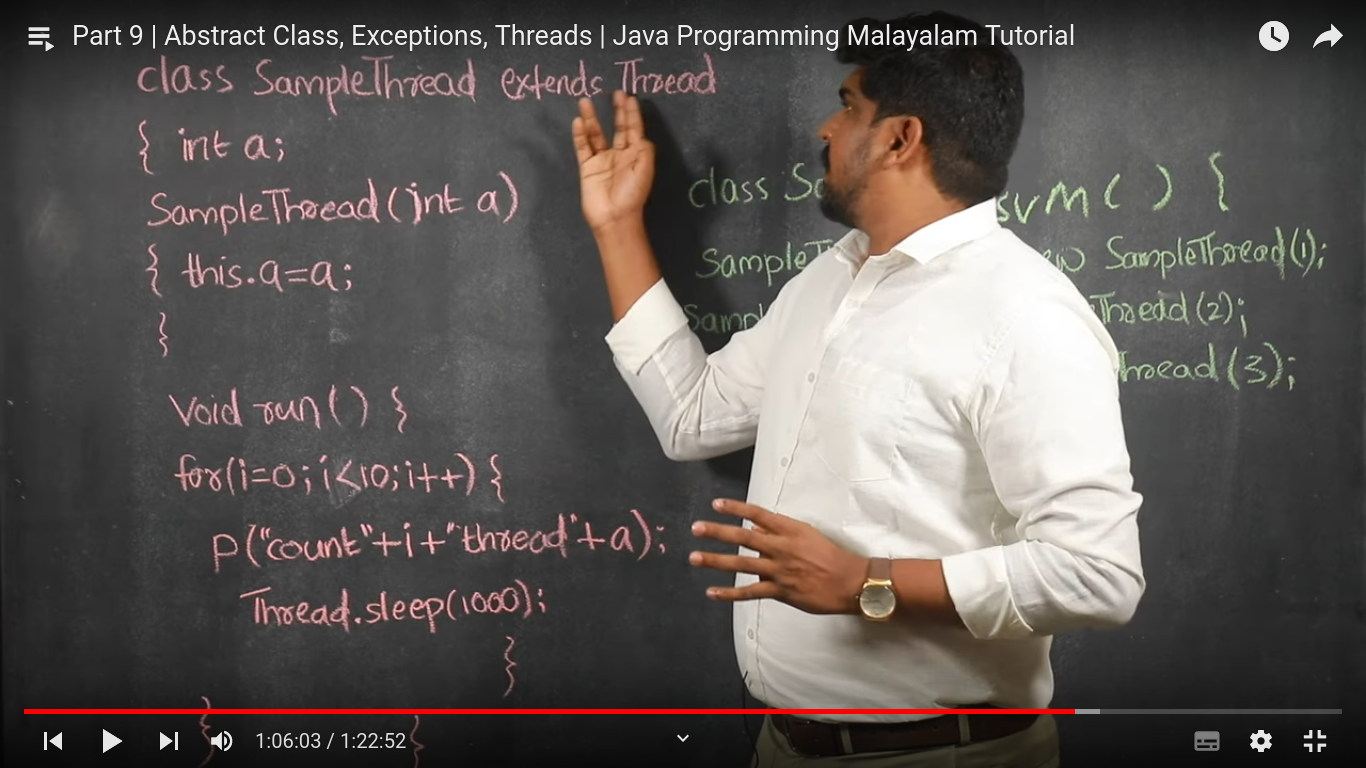 Part 9 | Abstract Class, Exceptions, Threads | Java Programming Malayalam Tutorial
class SampleThread extends Thread
{ int a;
SampleThread(int a)
{ this.a=a;
}
void run() {
for(i=0; i<10; i++) {
p("count"+i+"thread"+a);
Thread.sleep(1000);
}
} }
class SVM() {
SampleThread(1);
Thread(2);
Thread(3);
1:06:03 / 1:22:52